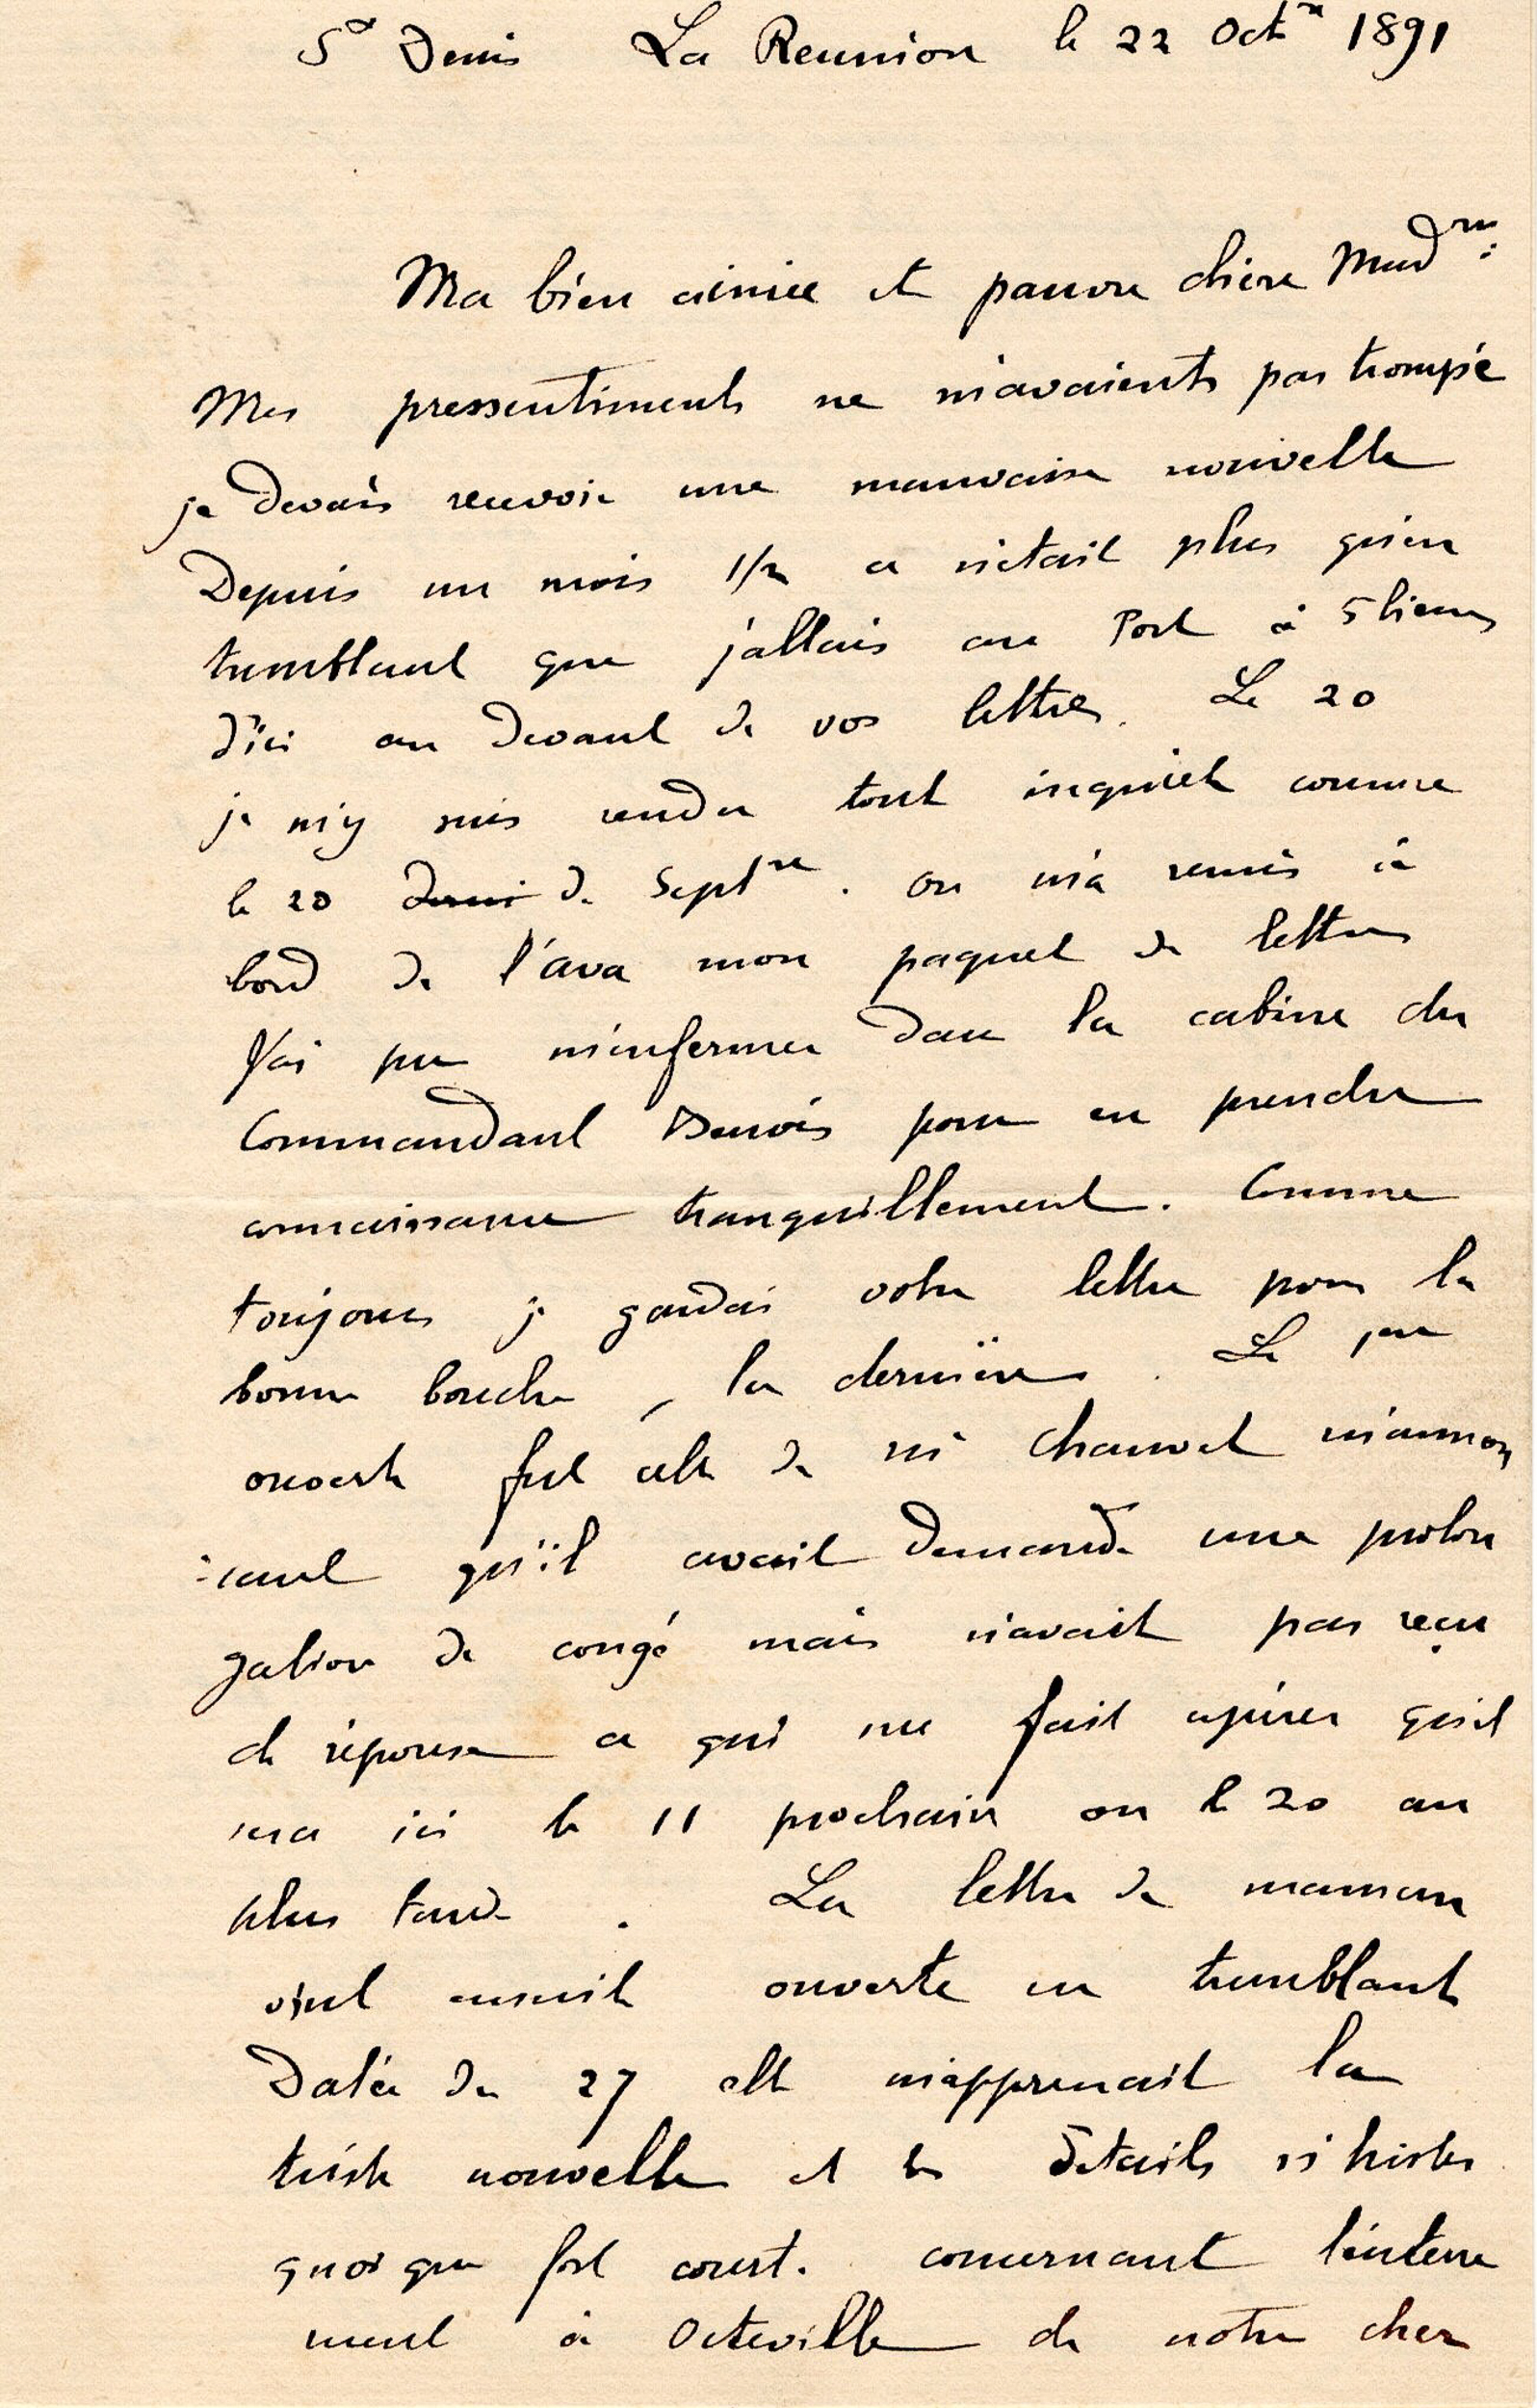 St Denis La Reunion le 22 Octre 1891
Ma bien aimée et pauvre chère Madme:
Mes pressentiments ne m'avaients pas trompé
je devais recevoir une mauvaise nouvelle
Depuis un mois 1/2 ce n'etait plus qu'en
tremblant que j'allais au Port à 5 lieues
d'ici au devant de vos lettres. Le 20
je m'y suis rendu tout inquiet comme
le 20 de Septre. on m'a remis à
bord de l'ava mon paquet de lettres
J'ai pu m'enfermer dans la cabine du
Commandant pour en prendre
connaissance tranquillement. Comme
toujours je gardais votre lettre pour la
bonne bouche, la dernière. La 1ere
ouverte fut celle de Mr Chauvet m'annon
:cant qu'il avait demandé une prolon
gation de congé mais n'avait pas reçu
de réponse ce qui me fait espérer qu'il
sera ici le 11 prochain ou le 20 au
plus tard. La lettre de maman
vint ensuite ouverte en tremblant
Datée du 27 elle m'apprenait la
triste nouvelle et les détails si tristes
quoique fort court. concernant l'enterre
ment à Octeville de notre cher